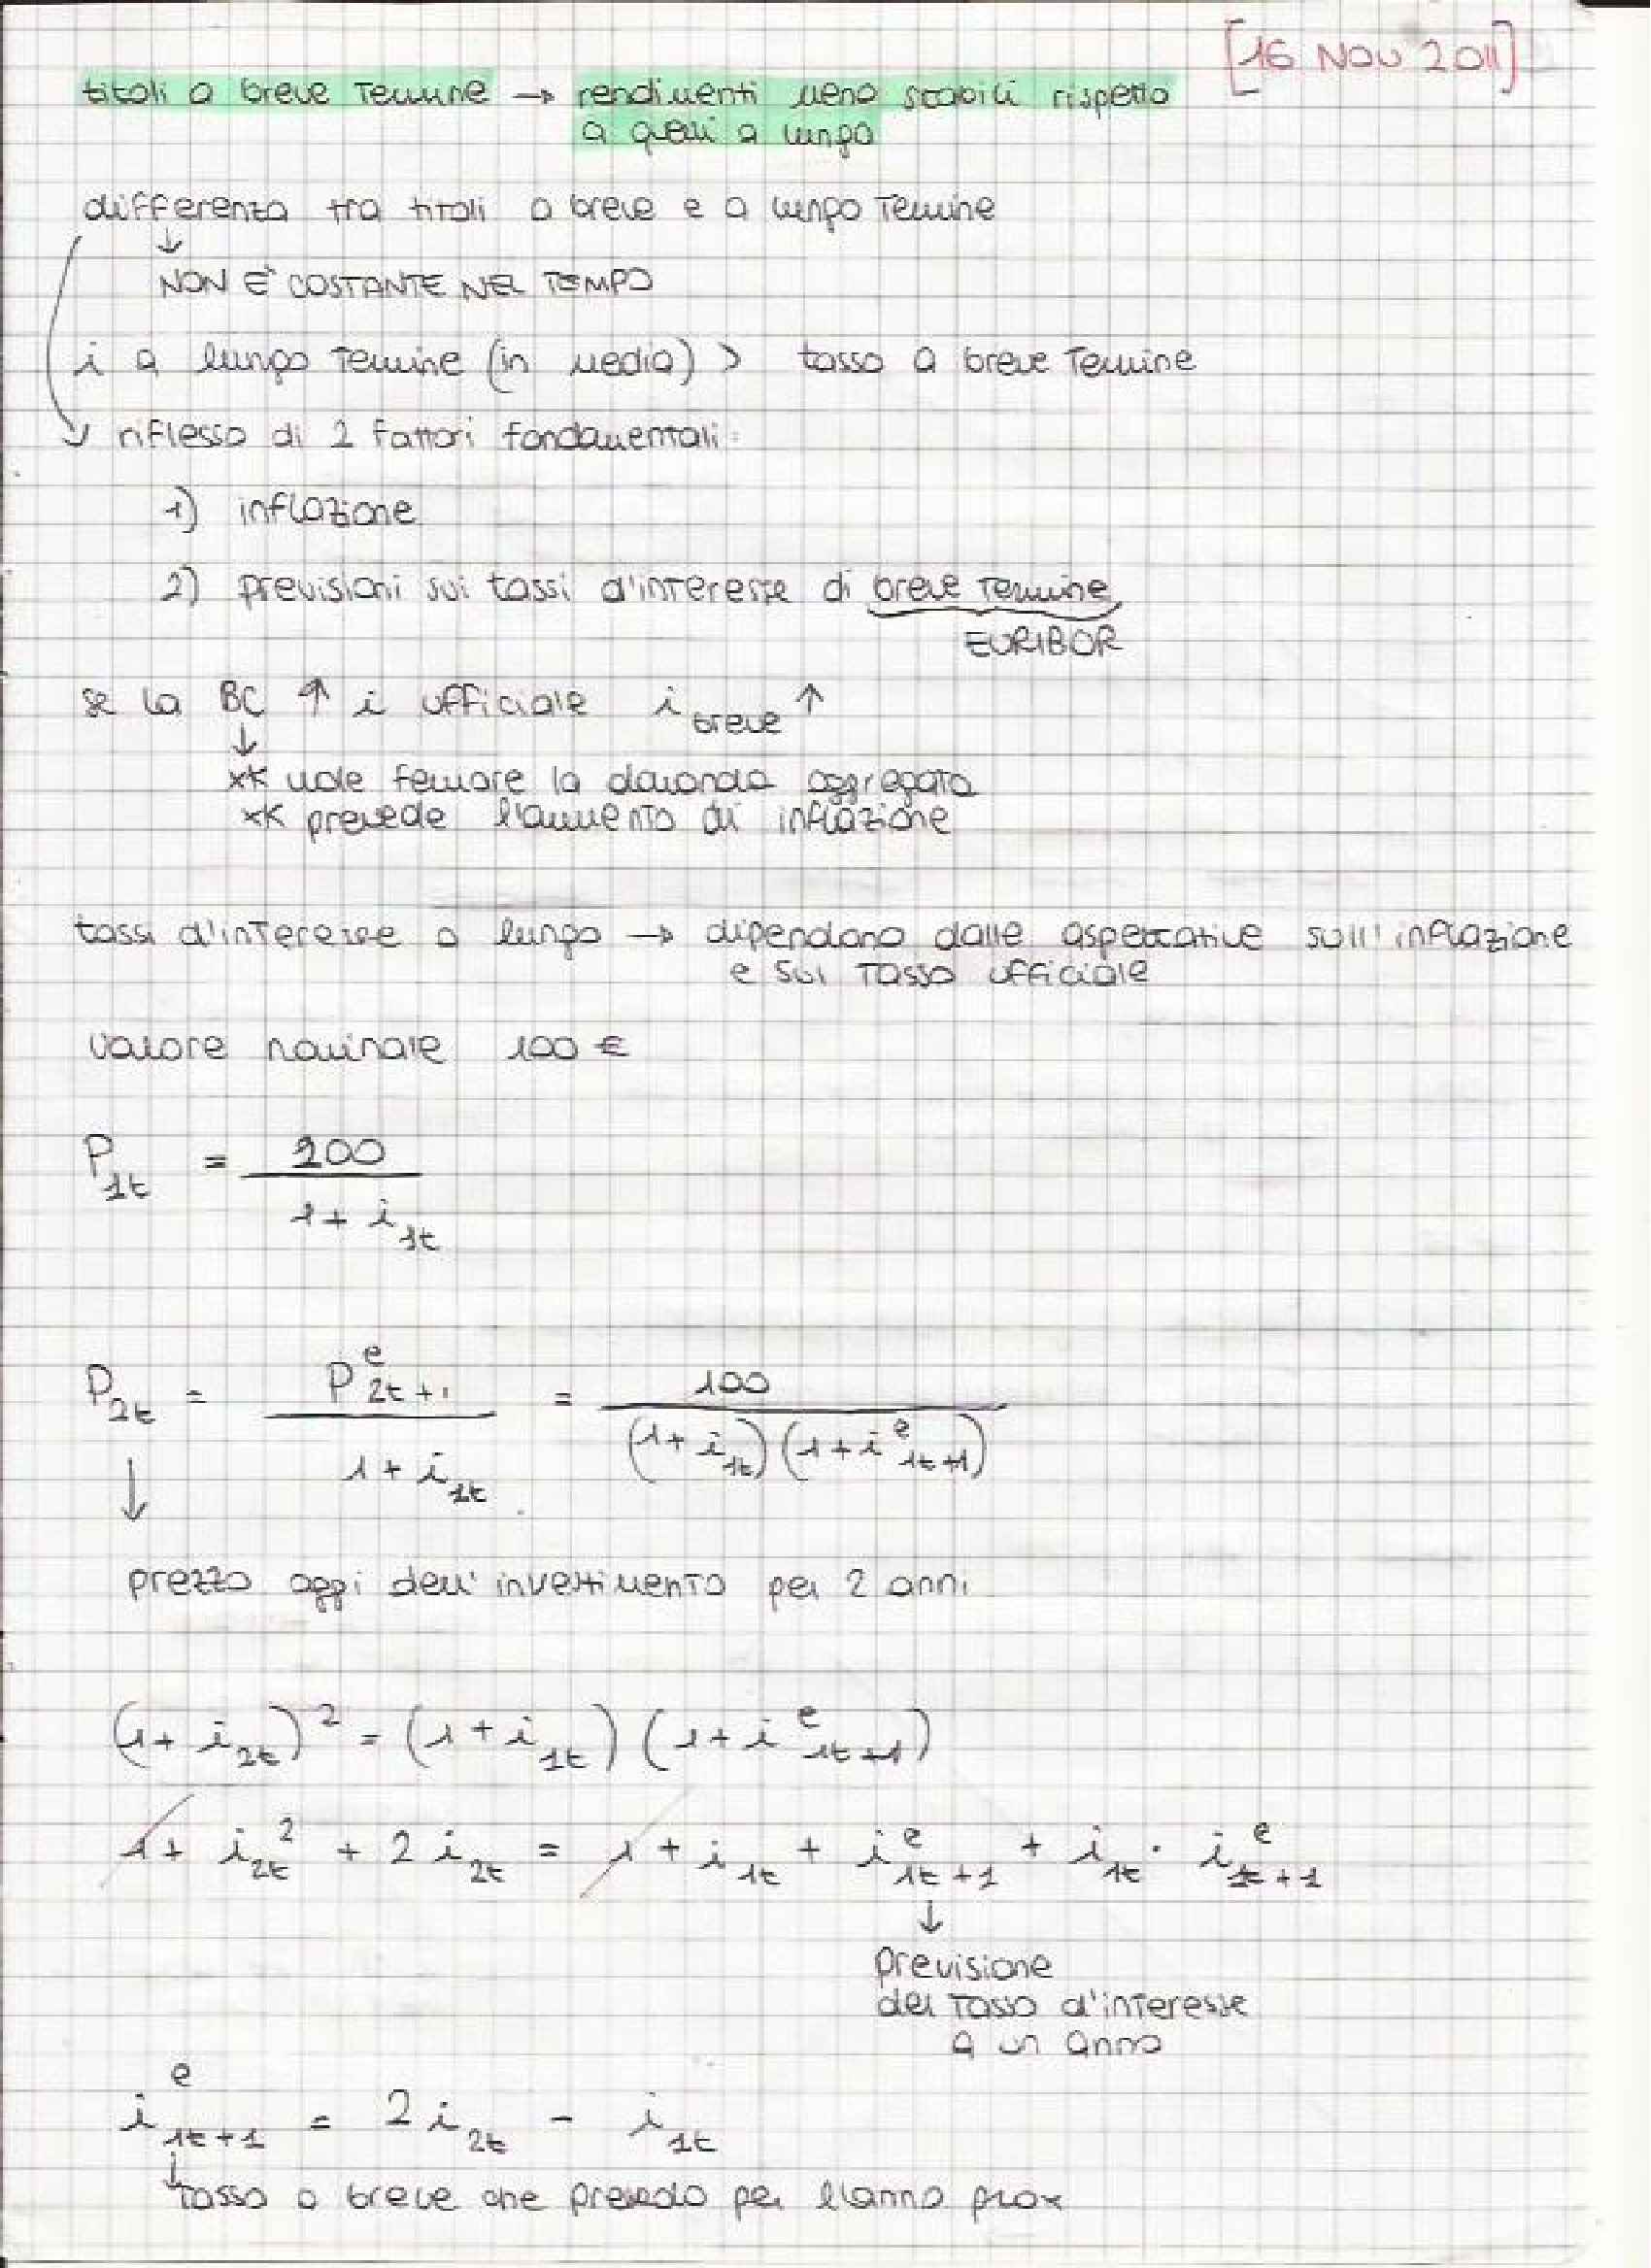 [16 NOV 2011]
titoli a breve termine → rendimenti meno stabili rispetto
a quelli a lungo
differenza tra titoli a breve e a lungo termine
↓
NON È COSTANTE NEL TEMPO
i a lungo termine (in media) > tasso a breve termine
riflesso di 2 fattori fondamentali:
1) inflazione
2) previsioni sui tassi d'interesse di breve termine
EURIBOR
se la BC ↑ i ufficiale i breve ↑
↓
xk vuole fermare la domanda aggregata
xk prevede l'aumento di inflazione
tassi d'interesse a lungo → dipendono dalle aspettative sull'inflazione
e sul tasso ufficiale
valore nominale 100 €
P1t = 100 / 1 + i1t
P2t = P^e 2t+1 / 1 + i1t = 100 / (1 + i1t) (1 + i^e 1t+1)
↓
prezzo oggi dell'investimento per 2 anni
(1 + i2t)² = (1 + i1t) (1 + i^e 1t+1)
1 + i2t² + 2 i2t = 1 + i1t + i^e 1t+1 + i1t · i^e 1t+1
↓
previsione
del tasso d'interesse
a un anno
i^e 1t+1 = 2 i2t - i1t
↓
tasso a breve che prevedo per l'anno prox